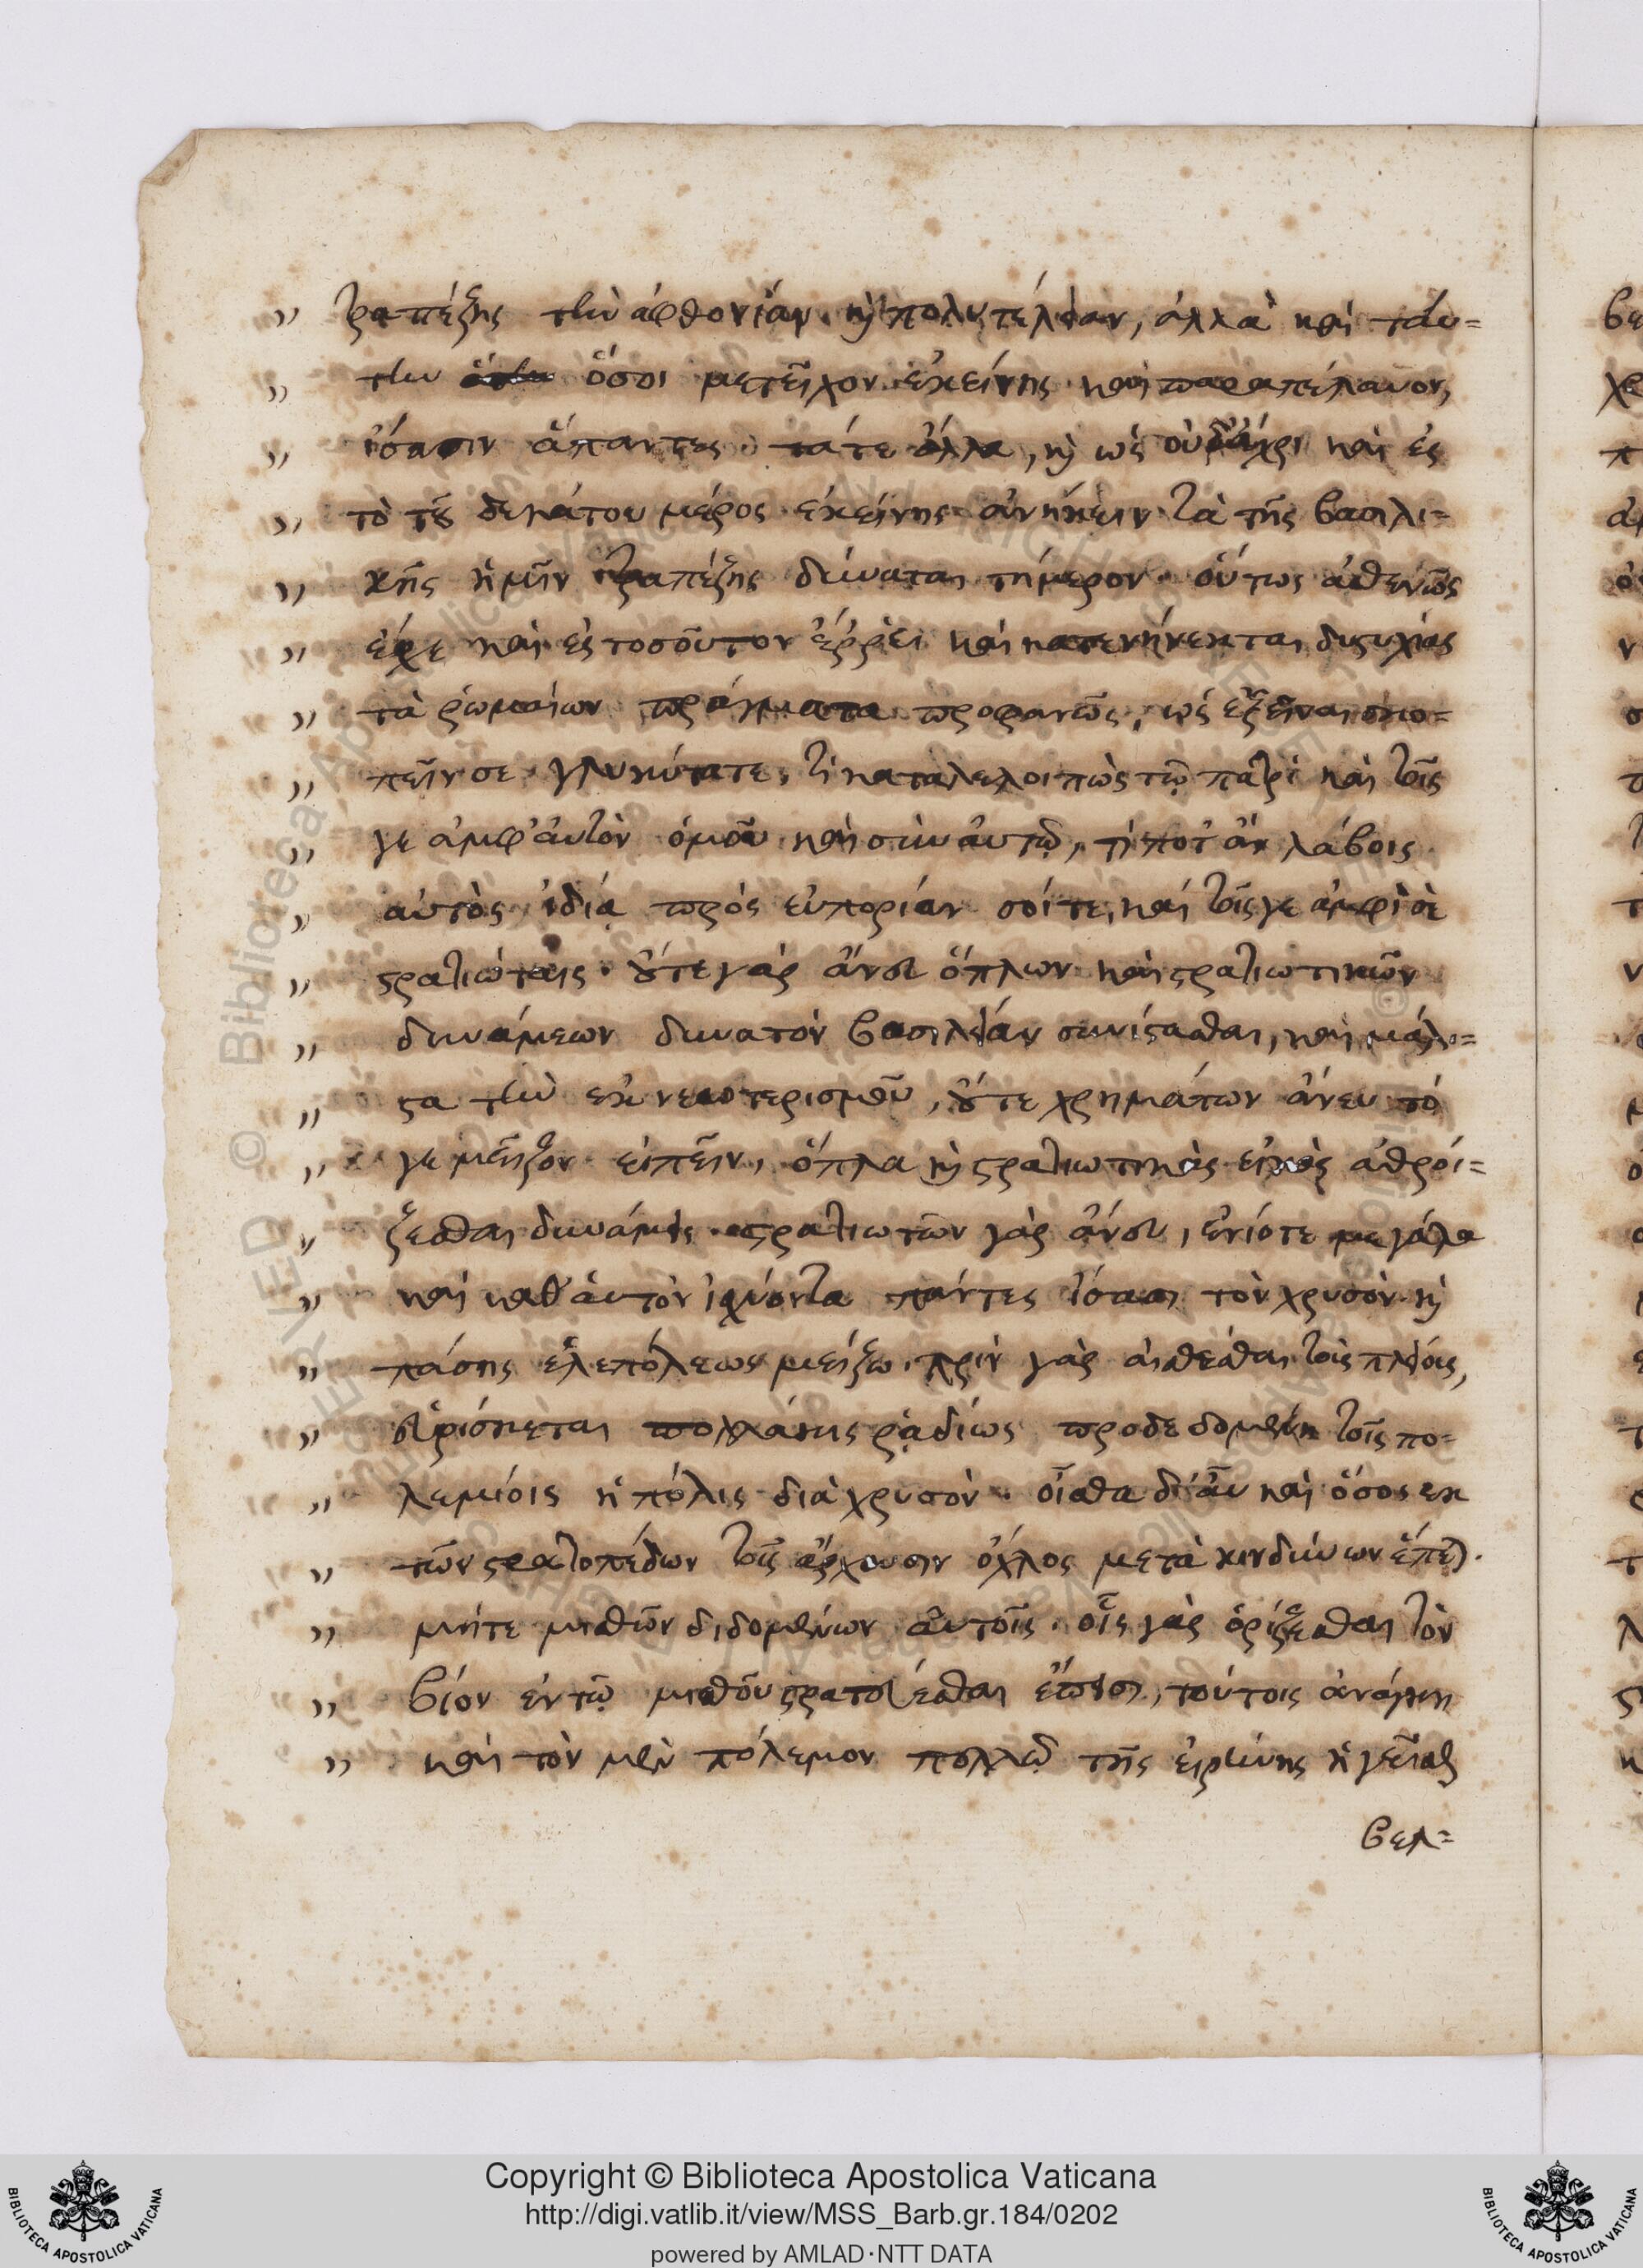 ,, τραπέζης τὴν ἀφθονίαν καὶ πολυτέλειαν, ἀλλὰ καὶ ταύ=
,, την ὅσοι μετεῖχον ἐκείνης καὶ παραπέλαυον,
,, ἴσασιν ἅπαντες τά τε ἄλλα, καὶ ὡς οὐδ' ἄχρι καὶ ἐς
,, τὸ τῆς δεκάτου μέρος ἐκείνης ἀνήκειν τὰ τῆς βασιλι=
,, κῆς ἡμῖν τραπέζης δύναται τήμερον. οὕτως ἀσθενῶς
,, ἔχει καὶ ἐς τοσοῦτον ἔρρει καὶ κατενήνεκται δυστυχίας
,, τὰ ῥωμαίων πράγματα προφανῶς, ὡς ἐξεῖναι σκο=
,, πεῖν σε γλυκύτατε, τί καταλελοιπὼς τῷ πατρὶ καὶ τοῖς
,, γε ἀμφ' αὐτὸν ὁμοῦ καὶ σὺν αὐτῷ, τί ποτ' ἂν λάβοις
,, αὐτὸς ἰδίᾳ πρὸς εὐπορίαν σοί τε, καὶ τοῖς γε ἀμφὶ σὲ
,, στρατιώταις. οὔτε γὰρ ἄνευ ὅπλων καὶ στρατιωτικῶν
,, δυνάμεων δυνατὸν βασιλείαν συνίστασθαι, καὶ μάλι=
,, στα τὴν ἐκ νεωτερισμοῦ, οὔτε χρημάτων ἄνευ τό
,, γε μεῖζον εἰπεῖν, ὅπλα καὶ στρατιωτικὰς εἰκὸς ἀθροί=
,, ζεσθαι δυνάμεις. στρατιωτῶν γὰρ ἄνευ, ἐνίοτε μεγάλα
,, καὶ καθ' αὑτὸν ἰσχύοντα πάντες ἴσασι τὸν χρυσὸν καὶ
,, πάσης ἑλεπόλεως μείζω. πρὶν γὰρ αἰσθέσθαι τοῖς πλείοις,
,, εὑρίσκεται πολλάκις ῥᾳδίως προδεδομένη τοῖς πο=
,, λεμίοις ἡ πόλις διὰ χρυσόν. οἶσθα δ' αὖ καὶ ὅσος ἐκ
,, τῶν στρατοπέδων τοῖς ἄρχουσιν ὄχλος μετὰ κινδύνων ἕπεται.
,, μήτε μισθῶν διδομένων αὐτοῖς. οἷς γὰρ ὁρίζεσθαι τὸν
,, βίον ἐν τῷ μισθοῦ στρατεύεσθαι ἔπεισι, τούτοις ἀνάγκη
,, καὶ τὸν μὲν πόλεμον πολλῷ τῆς εἰρήνης ἡγεῖσθαι
βελ=
Copyright © Biblioteca Apostolica Vaticana
http://digi.vatlib.it/view/MSS_Barb.gr.184/0202
powered by AMLAD·NTT DATA
BIBLIOTECA APOSTOLICA VATICANA
BIBLIOTECA APOSTOLICA VATICANA